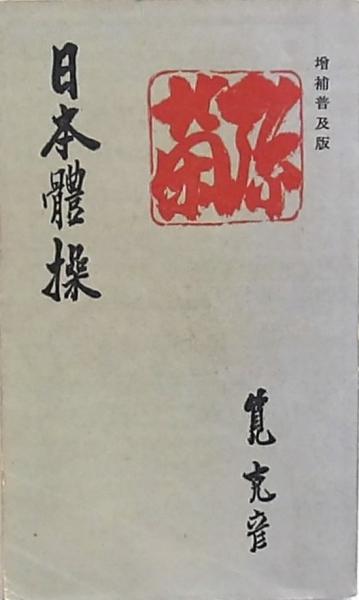 增補普及版
筧克彦
日本體操